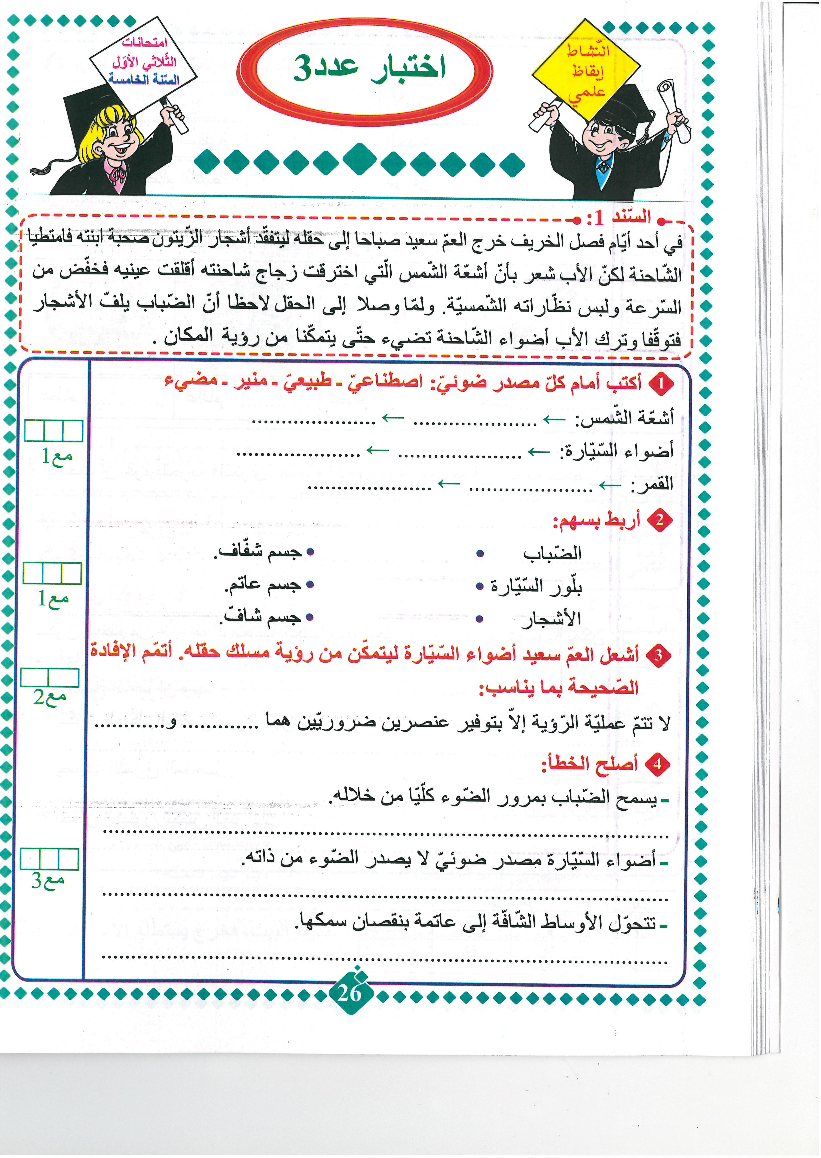 امتحانات
الثّلاثي الأوّل
السّنة الخامسة
اختبار عدد3
النّشاط
إيقاظ
علمي
السّند 1:
في أحد أيّام فصل الخريف خرج العمّ سعيد صباحا إلى حقله ليتفقّد أشجار الزّيتون صحبة ابنته فامتطيا
الشّاحنة لكنّ الأب شعر بأنّ أشعّة الشّمس الّتي اخترقت زجاج شاحنته أقلقت عينيه فخفّض من
السّرعة ولبس نظّاراته الشّمسيّة. ولمّا وصلا إلى الحقل لاحظا أنّ الضّباب يلفّ الأشجار
فتوقّفا وترك الأب أضواء الشّاحنة تضيء حتّى يتمكّنا من رؤية المكان .
1 أكتب أمام كلّ مصدر ضوئيّ: اصطناعيّ - طبيعيّ - منير - مضيء
أشعّة الشّمس: ← ..................... ← .....................
أضواء السّيّارة: ← ..................... ← .....................
القمر: ← ..................... ← .....................
مع1
2 أربط بسهم:
الضّباب • • جسم شفّاف.
بلّور السّيّارة • • جسم عاتم.
الأشجار • • جسم شافّ.
مع1
3 أشعل العمّ سعيد أضواء السّيّارة ليتمكّن من رؤية مسلك حقله. أتمّم الإفادة
الصّحيحة بما يناسب:
لا تتمّ عمليّة الرّؤية إلاّ بتوفير عنصرين ضروريّين هما ............. و.............
مع2
4 أصلح الخطأ:
- يسمح الضّباب بمرور الضّوء كلّيّا من خلاله.
- أضواء السّيّارة مصدر ضوئيّ لا يصدر الضّوء من ذاته.
- تتحوّل الأوساط الشّافّة إلى عاتمة بنقصان سمكها.
مع3
26